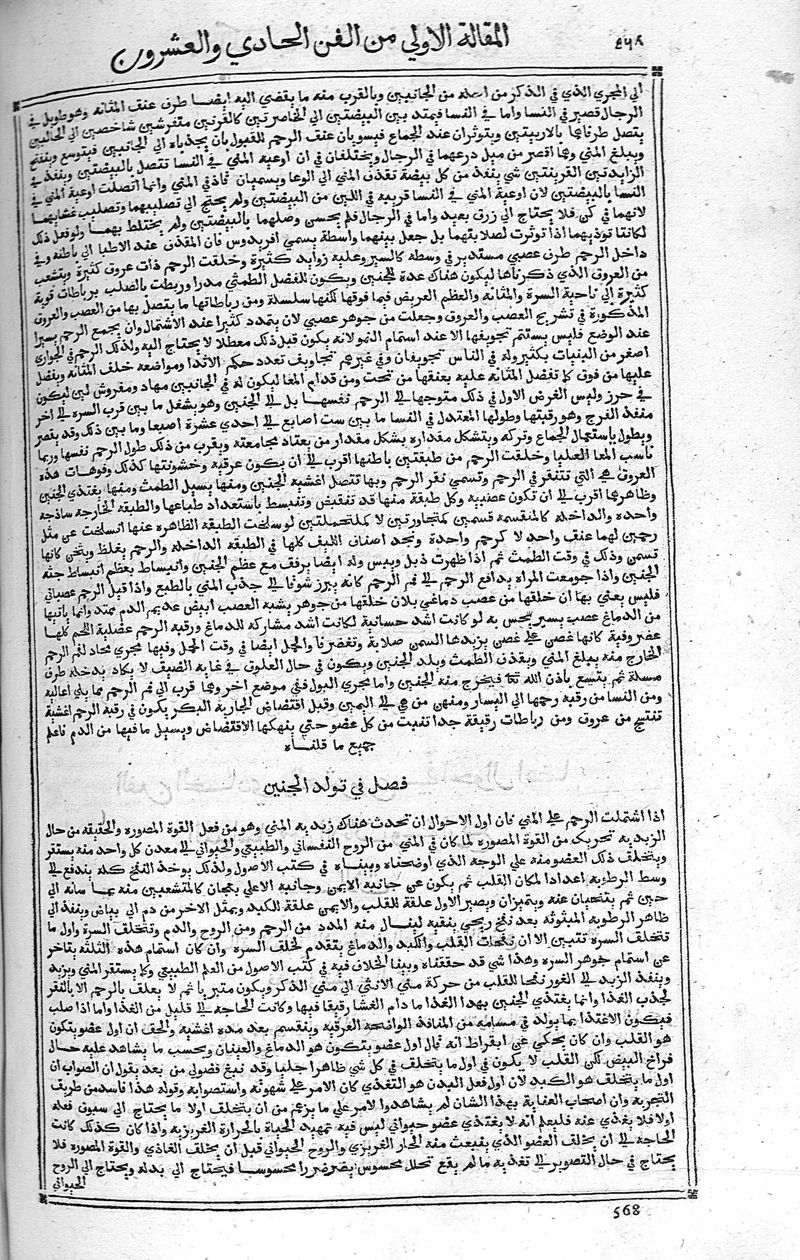 ٥٦٨ المقالة الاولي من الفن الحادي والعشرون
الي المجري الذي في الذكر من اسفله من الجانبين وبالقرب منه ما يفضي اليه ايضا طرف عنق المثانة وهو طويل في
الرجال قصير في النسا واما في النسا فيمتد بين البيضتين الي الخاصرتين كالقرنين متقوسين شاخصين الي الحالبين
يتصل طرفاهما بالاربيتين ويتوتران عند الجماع فيسويان عنق الرحم للقبول بان يجذباه الي الجانبين فيتوسع وينفتح
ويبلع المني وهما اقصر من مرسل زرعهما في الرجال ويختلفان في ان اوعية المني في النسا تتصل بالبيضتين وينفذ في
الزايدتين القرنيتين شي ينفذ من كل بيضة تقذف المني الي الوعا ويسميان قاذفي المني وانما اتصلت اوعية المني في
النسا بالبيضتين لان اوعية المني في النسا قريبة في اللين من البيضتين ولم يحتج الي تصليبهما وتصليب غشايهما
لانهما في كن فلا يحتاج الي زرق بعيد واما في الرجال فلم يحسن وصلهما بالبيضتين ولم يختلط بهما ولو فعل ذلك
لكانتا توذيهما اذا توترت لصلابتهما بل جعل بينهما واسطة يسمي افريدوس فان المقذف عند الاطبا الي باطنه وفي
داخل الرحم طرف عصبي مستدير في وسطه كالسير وعليه زوايد كثيرة وخلقت الرحم ذات عروق كثيرة ويتشعب
من العروق الذي ذكرناها ليكون هناك عدة للجنين ويكون للفضل الطمثي مدرا وربطت بالصلب برباطات قوية
كثيرة الي ناحية السرة والمثانة والعظم العريض فيما فوقها لكنها سلسلة ومن رباطاتها ما يتصل بها من العصب والعروق
المذكورة في تشريح العصب والعروق وجعلت من جوهر عصبي لان يتمدد كثيرا عند الاشتمال وان يجمع الرحم يسيرا
عند الوضع فليس يستتم تجويفها الا عند استمام النمو لانه يكون قبل ذلك معطلا لا يحتاج اليه ولذلك الرحم في الجواري
اصغر من الثيبات بكثير وله في الناس تجويفان وفي غيرهم تجاويف تعدد حكم الاثدا ومواضعه خلف المثانة ويفضل
عليها من فوق كما تفضل المثانة عليه بعنقها من تحت ومن قدام المعا ليكون له في الجانبين مهاد ومفروش لين ليكون
في حرز وليس الغرض الاول في ذلك متوجها الي الرحم نفسها بل الي الجنين وهو يشغل ما بين قرب السرة الي اخر
منفذ الفرج وهو رقبتها وطولها المعتدل في النسا ما بين ست اصابع الي احدي عشرة اصبعا وما بين ذلك وقد يقصر
ويطول باستعمال الجماع وتركه ويتشكل مقداره بشكل مقدار من يعتاد مجامعته ويقرب من ذلك طول الرحم نفسها وربما
ماست المعا العليا وخلقت الرحم من طبقتين باطنها اقرب الي ان يكون عرقية وخشونتها كذلك وفوهات هذه
العروق هي التي تتنقر في الرحم وتسمي نقر الرحم وبها تتصل اغشية الجنين ومنها يسيل الطمث ومنها يغتذي الجنين
وظاهرهما اقرب الي ان تكون عصبية وكل طبقة منها قد تنقبض وتنبسط باستعداد طباعها والطبقة الخارجة ساذجة
واحدة والداخلة كالمنقسمة قسمين كمتجاورتين لا كملتحمتين لو سلخت الطبقة الظاهره عنها انسلخت عن مثل
رحمين لهما عنق واحد لا كرحم واحدة وتجد اصناف الليف كلها في الطبقة الداخلة والرحم يغلظ ويثخن كانها
تسمن وذلك في وقت الطمث ثم اذا ظهرت ذبل ويبس وله ايضا يرفق مع عظم الجنين وانبساط يعظم انبساط جثة
الجنين واذا جومعت المراة يدافع الرحم الي فم الرحم كانه يبرز شوقا الي جذب المني بالطبع واذا قيل الرحم عصباني
فليس يعني بها ان خلقها من عصب دماغي بلان خلقها من جوهر يشبه العصب ابيض عديم الدم ممتد وانما ياتيها
من الدماغ عصب يسير يحس به لو كانت اشد حسانية لكانت اشد مشاركة للدماغ ورقبة الرحم عضلية اللحم كلها
غضروفية كانها غصن علي غصن يزيدها السمن صلابة وتغضرفا والحبل ايضا في وقت الحمل وفيها مجري محاذ لفم الرحم
الخارج منه يبلع المني ويقذف الطمث ويلد الجنين ويكون في حال العلوق في غاية الضيق لا يكاد يدخله طرف
مسلة ثم يتسع باذن الله تعا فيخرج منه الجنين واما مجري البول ففي موضع اخر وهو قرب الي فم الرحم مما يلي اعاليه
ومن النسا من رقبة رحمها الي اليسار ومنهن من هي الي اليمين وقبل اقتضاض الجارية البكر يكون في رقبة الرحم اغشية
تنتسج من عروق ومن رباطات رقيقة جدا تنبت من كل عضو حتي ينهكها الاقتضاض ويسيل ما فيها من الدم فاعلم
جميع ما قلناه
فصل في تولد الجنين
اذا اشتملت الرحم علي المني فان اول الاحوال ان تحدث هناك زبدية المني وهو من فعل القوة المصورة والحقيقة من حال
الزبدية تحريك من القوة المصورة لما كان في المني من الروح النفساني والطبيعي والحيواني الي معدن كل واحد منه يستقر
ويتخلف ذلك العضو منه علي الوجه الذي اوضحناه وبيناه في كتب الاصول ولذلك يوخذ النفخ كله يندفع الي
وسط الرطوبة اعدادا لمكان القلب ثم يكون عن جانبه الايمن وجانبه الاعلي نفخان كالمتشعبين منه يماسانه الي
حين ثم يتنحيان عنه ويتميزان ويصير الاول علقة للقلب والايمن علقة للكبد ويمثل الاخر من دم الي بياض وينفذ الي
ظاهر الرطوبة المبثوثه بعد نفخ ريحي ينقيه لينال منه المدد من الرحم ومن الروح والدم وتتخلف السرة واول ما
تتخلف السرة تتبين الا ان نفخات القلب والكبد والدماغ يتقدم تخلف السره وان كان استمام هذه الثلثه يتاخر
عن استمام جوهر السره وهذا شي قد حققناه وبينا الخلاف فيه في كتب الاصول من العلم الطبيعي وكما يستقر المني ويزبد
وينفذ الزبد الي الغور نفخا للقلب من حركة مني الانثي الي مني الذكر ويكون متبريا ثم لا يعلق بالرحم الا بالنقر
لجذب الغذا وانما يغتذي الجنين بهذا الغذا ما دام الغشا رقيقا فيها وكانت الحاجة الي قليل من الغذا واما اذا صلب
فيكون الاغتذا بما يولد في مسامه من المنافذ الواضحة العرقية وينقسم بعد مدة اغشية والحق ان اول عضو يتكون
هو القلب وان كان يحكي عن ابقراط انه قال اول عضو يتكون هو الدماغ والعينان وبحسب ما يشاهد عليه حال
فراخ البيض لكن القلب لا يكون في اول ما يتخلف في كل شي ظاهرا جليا وقد نبغ فضولي من بعد يقول ان الصواب ان
اول ما يتخلف هو الكبد لان اول فعل البدن هو التغذي كان الامر علي شهوته واستصوابه وقوله هذا فاسد من طريق
التجربة وان اصحاب العناية بهذا الشان لم يشاهدوا الامر علي ما يزعم من ان يتخلف اولا ما يحتاج الي سبوق فعله
اولا فلا يغذي عنه فليعلم انه لا يغتذي عضو حيواني ليس فيه تمهيد الحياة بالحرارة الغريزية واذا كان كذلك كانت
الحاجة الي ان يخلف العضو الذي ينبعث منه الحار الغريزي والروح الحيواني قبل ان يخلف الغاذي والقوة المصوره فلا
يحتاج في حال التصوير الي تغذيه ما لم يقع تحلل محسوس يضر ضررا محسوسا فيحتاج الي بدله ويحتاج الي الروح
الحيواني
568